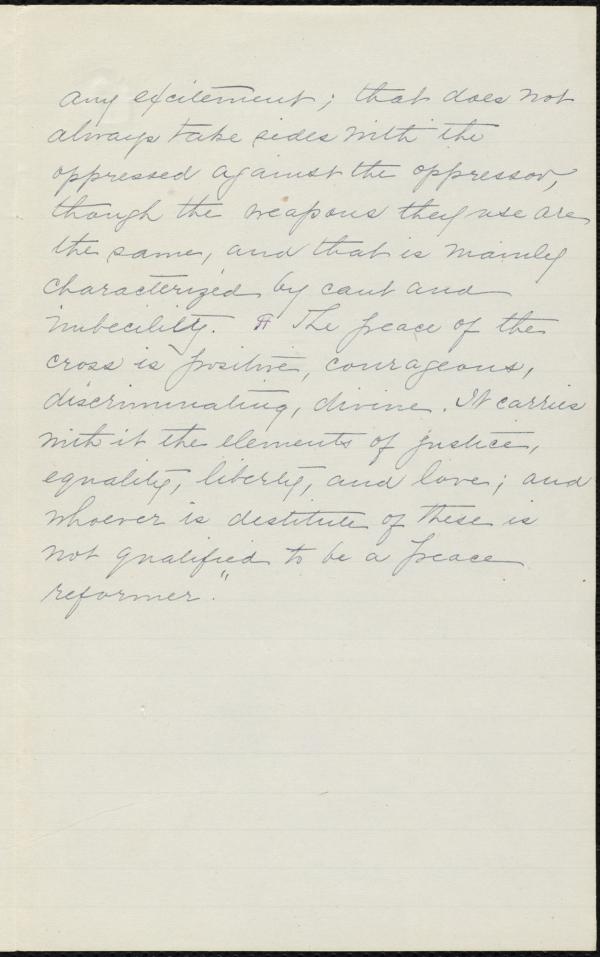 any excitement; that does not
always take sides with the
oppressed against the oppressor,
though the weapons they use are
the same, and that is mainly
characterized by cant and
imbecility. The peace of the
cross is positive, courageous,
discriminating, divine. It carries
with it the elements of justice,
equality, liberty, and love; and
whoever is destitute of these is
not qualified to be a peace
reformer."